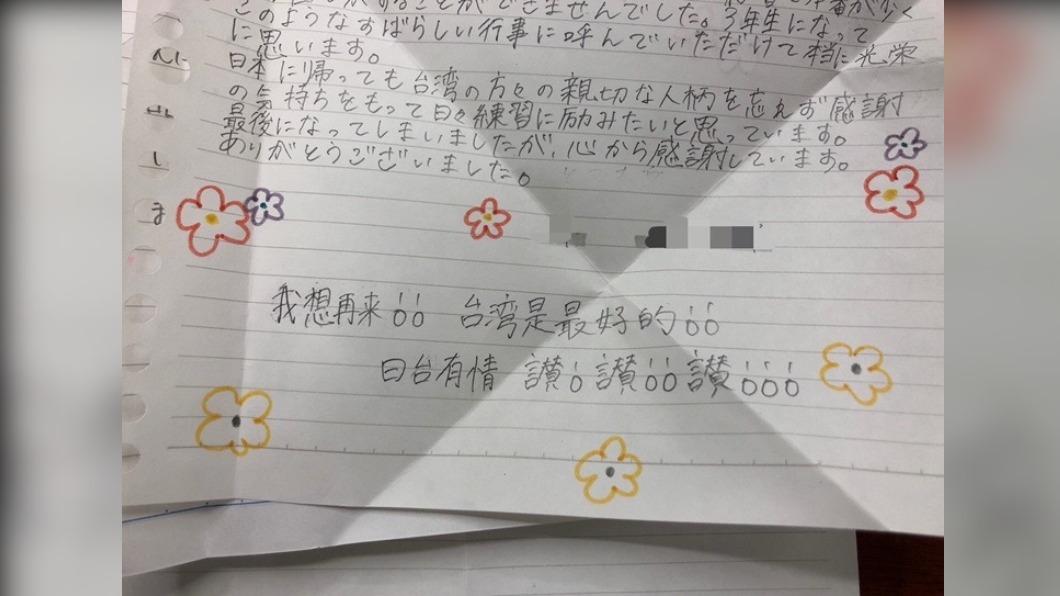 ることができませんでした。3年生になって
このようなすばらしい行事に呼んでいただけて本当に光栄
に思います。
日本に帰っても台湾の方々の親切な人柄を忘れず感謝
の気持ちをもって日々練習に励みたいと思っています。
最後になってしまいましたが、心から感謝しています。
ありがとうございました。
し
ま
我想再来!! 台湾是最好的!!
日台有情 讃! 讃!! 讃!!!